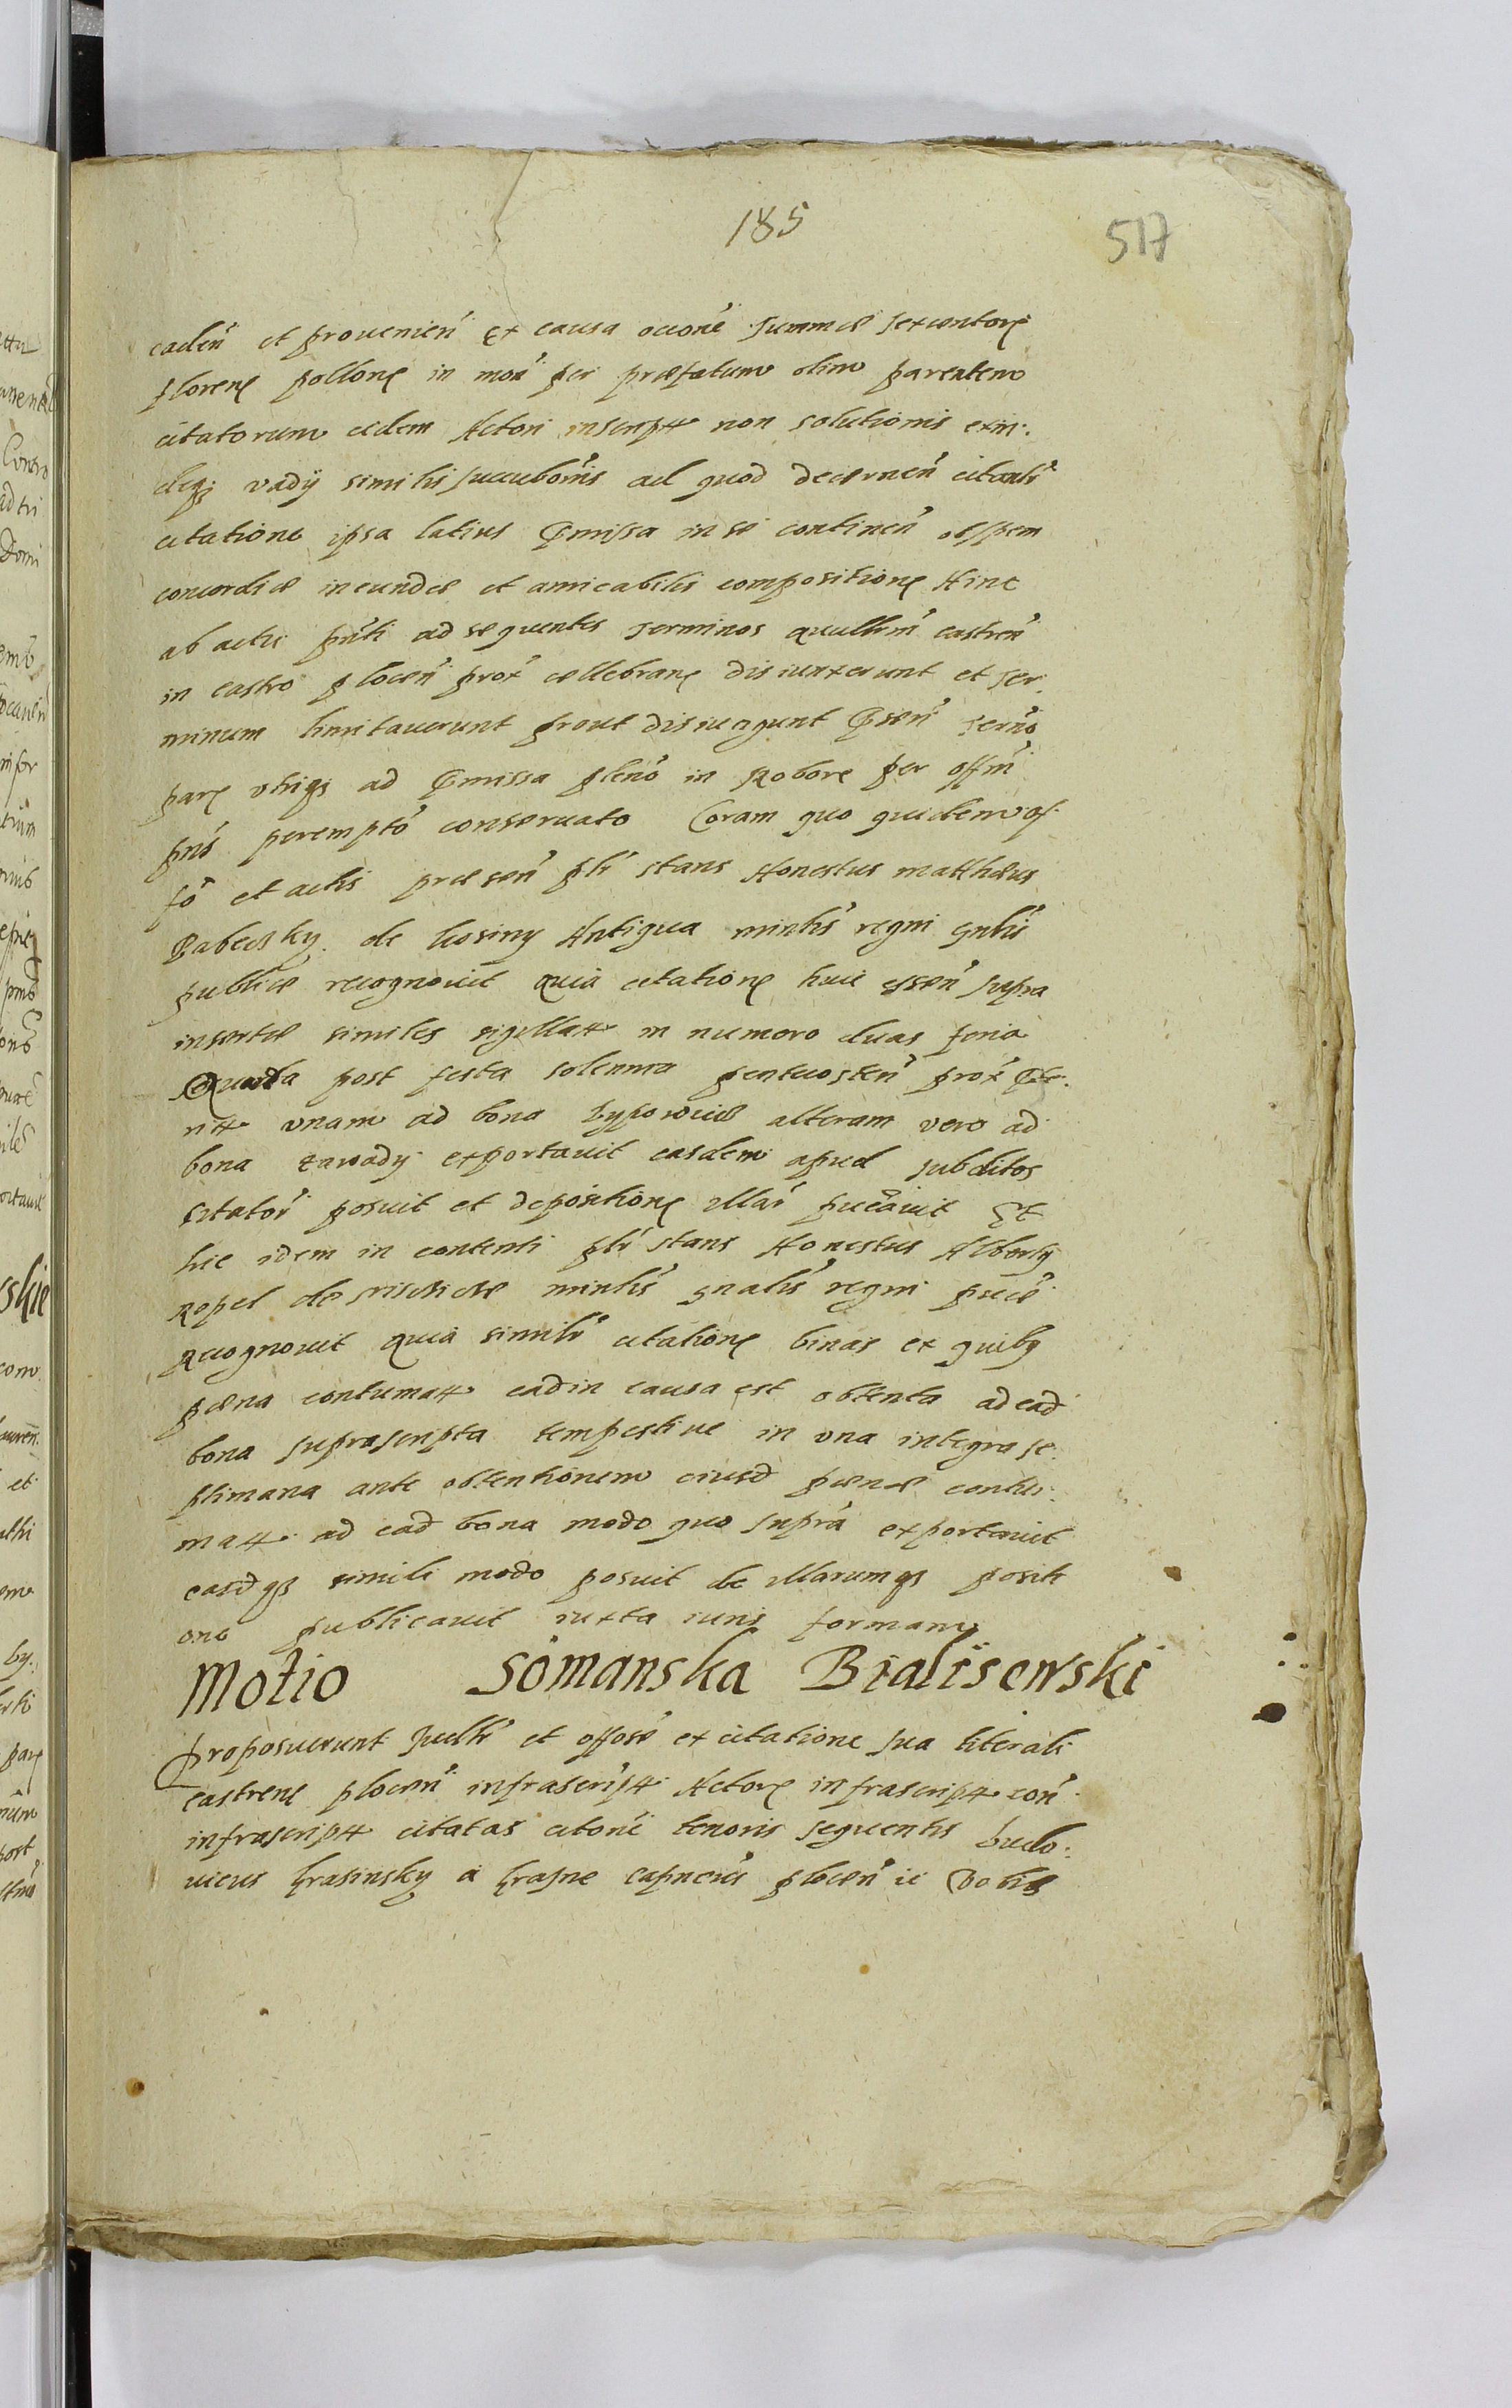 185
517
caden et provenien ex causa occone summæ sexcentore
florene pollone in mon per præfatum olim parentem
citatorum eidem Actori inscript non solutionis exin
deq3 vadij similis succubonis ad quod decernen citanti
citatione ipsa latius pmissa in se continen ob spem
concordiæ ineundæ et amicabilis compositione Hinc
ab actu pnti ad sequentes terminos quullrm castren
in castro plocen prox cellebrane disiunxerunt et ter
minum limitaverunt prout disiugunt psen termo
pare utriqs ad pmissa pleno in Robore per offm
pns perempto conservato Coram quo quidem of
fo et actis præsen plr stans Honestus matthæus
de Antiqua minlis regni gnlis
publice recognovit quia citatione huic essen supra
insertæ similes sigillatt in numero duas feria
Quarta post festa solennia pentecosten prox
ritt unam ad bona alteram vero ad
bona zawady exportavit easdem apud subditos
citator posuit et depositione illar pucavit Et
hic idem in contenti plr stans Honestus Alberty
Kopel de minlis gnalis regni puce
Recognovit quia simile citatione binas ex quiby
pæna contumatt ead in causa est obtenta ad ead
bona suprascripta tempestive in una integra se
ptimana ante obtentionem eiusd pænæ contu
matt ad ead bona modo quo supra exportavit
easdqs simili modo posuit de illarumqs positi
one publicavit iuxta iuris formam
Motio Somanska Bialisewski
Proposuerunt Jullr et offose ex citatione sua literali
castrene plocen infrascript Actore infrascript con
infrascript citatas citone tenoris sequentis Ludo
vicus krasinsky a krasne capneus plocen ic Vobis